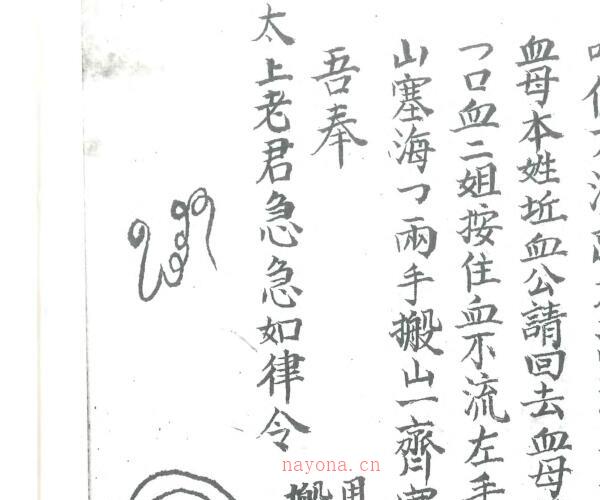 血母本姓坵血公請回去血母
一口血二姐按住血不流左手
山塞海一兩手搬山一齊
吾奉
太上老君急急如律令
搬
nayona.cn